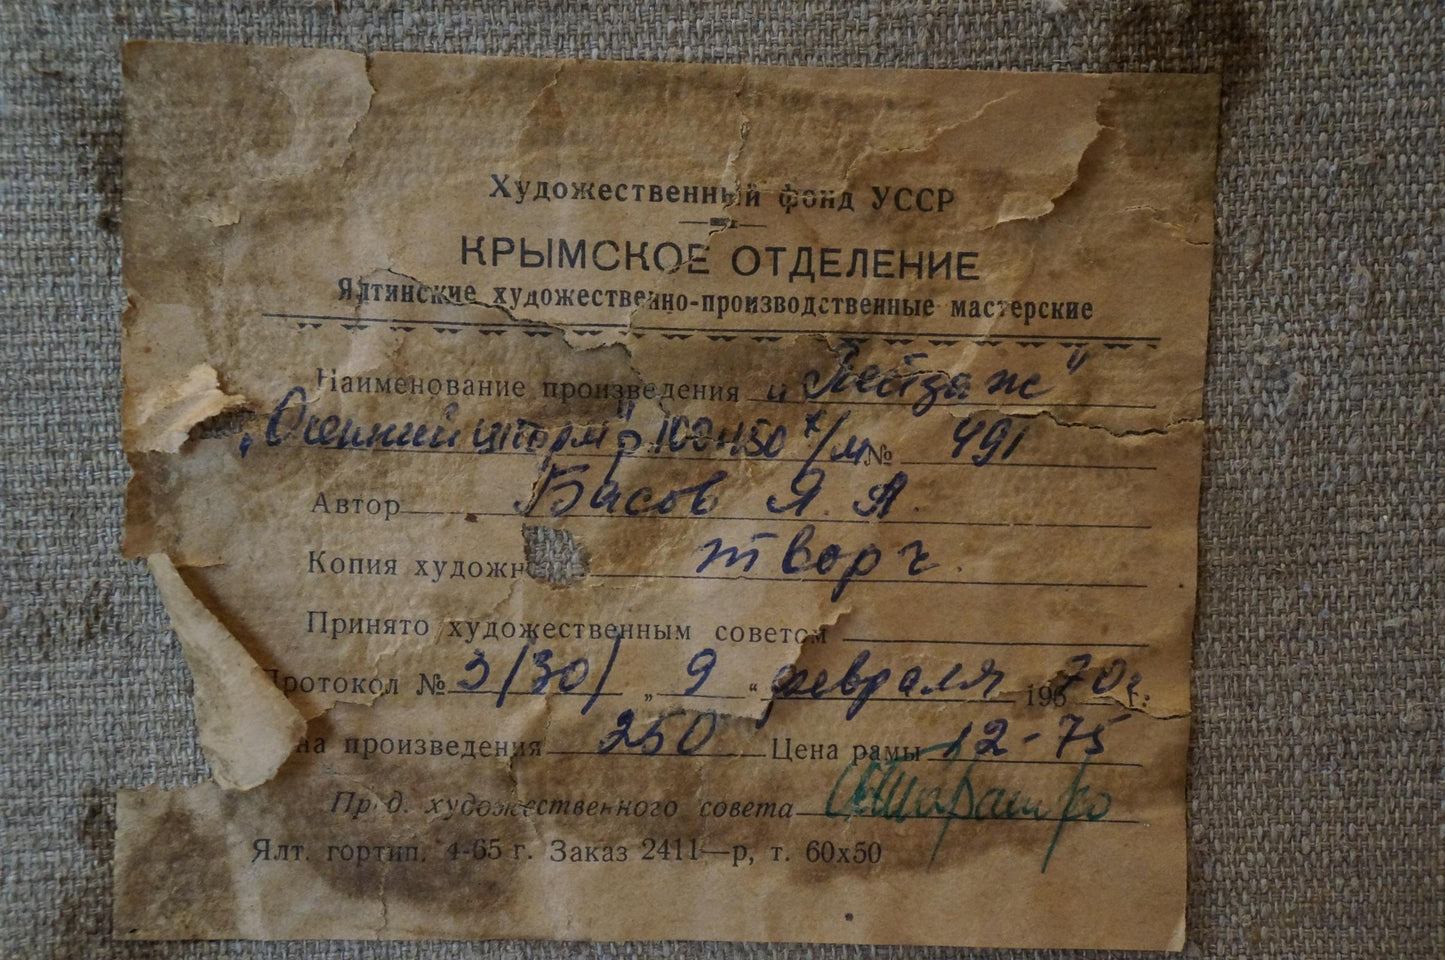 Художественный фонд УССР
КРЫМСКОЕ ОТДЕЛЕНИЕ
Ялтинские художественно-производственные мастерские
Наименование произведения „Пейзаж"
„Осенний шторм" р. 100х150 х/м № 491
Автор Басов Я. А.
Копия художн творч.
Принято художественным советом
Протокол № 3/30/ „ 9 " февраля 196 70 г.
на произведения 250 Цена рамы 12-75
Пр д. художественного совета
Ялт. гортип. 4-65 г. Заказ 2411—р, т. 60х50